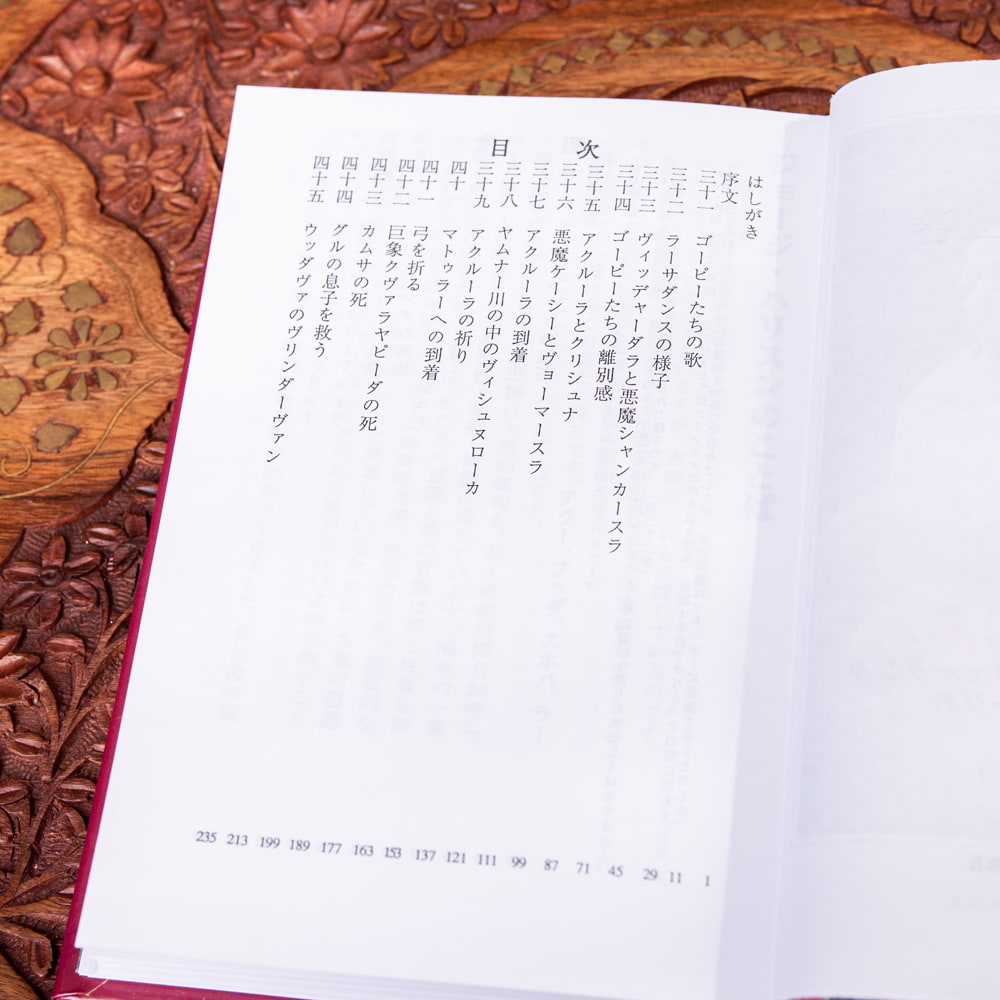 目次
はしがき 1
序文 11
三十一 ゴーピーたちの歌 29
三十二 ラーサダンスの様子 45
三十三 ヴィッデャーダラと悪魔シャンカースラ 71
三十四 ゴーピーたちの離別感 87
三十五 アクルーラとクリシュナ 99
三十六 悪魔ケーシーとヴョーマースラ 111
三十七 アクルーラの到着 121
三十八 ヤムナー川の中のヴィシュヌローカ 137
三十九 アクルーラの祈り 153
四十 マトゥラーへの到着 163
四十一 弓を折る 177
四十二 巨象クヴァラヤピーダの死 189
四十三 カムサの死 199
四十四 グルの息子を救う 213
四十五 ウッダヴァのヴリンダーヴァン 235